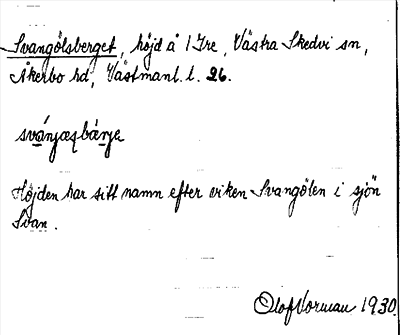 Svangölsberget, höjd å 1 Tre, Västra Skedvi sn,
Åkerbo hd, Västmanl. l. 26.
Höjden har sitt namn efter viken Svangölen i sjön
Svan.
Olof Vorman 1930.